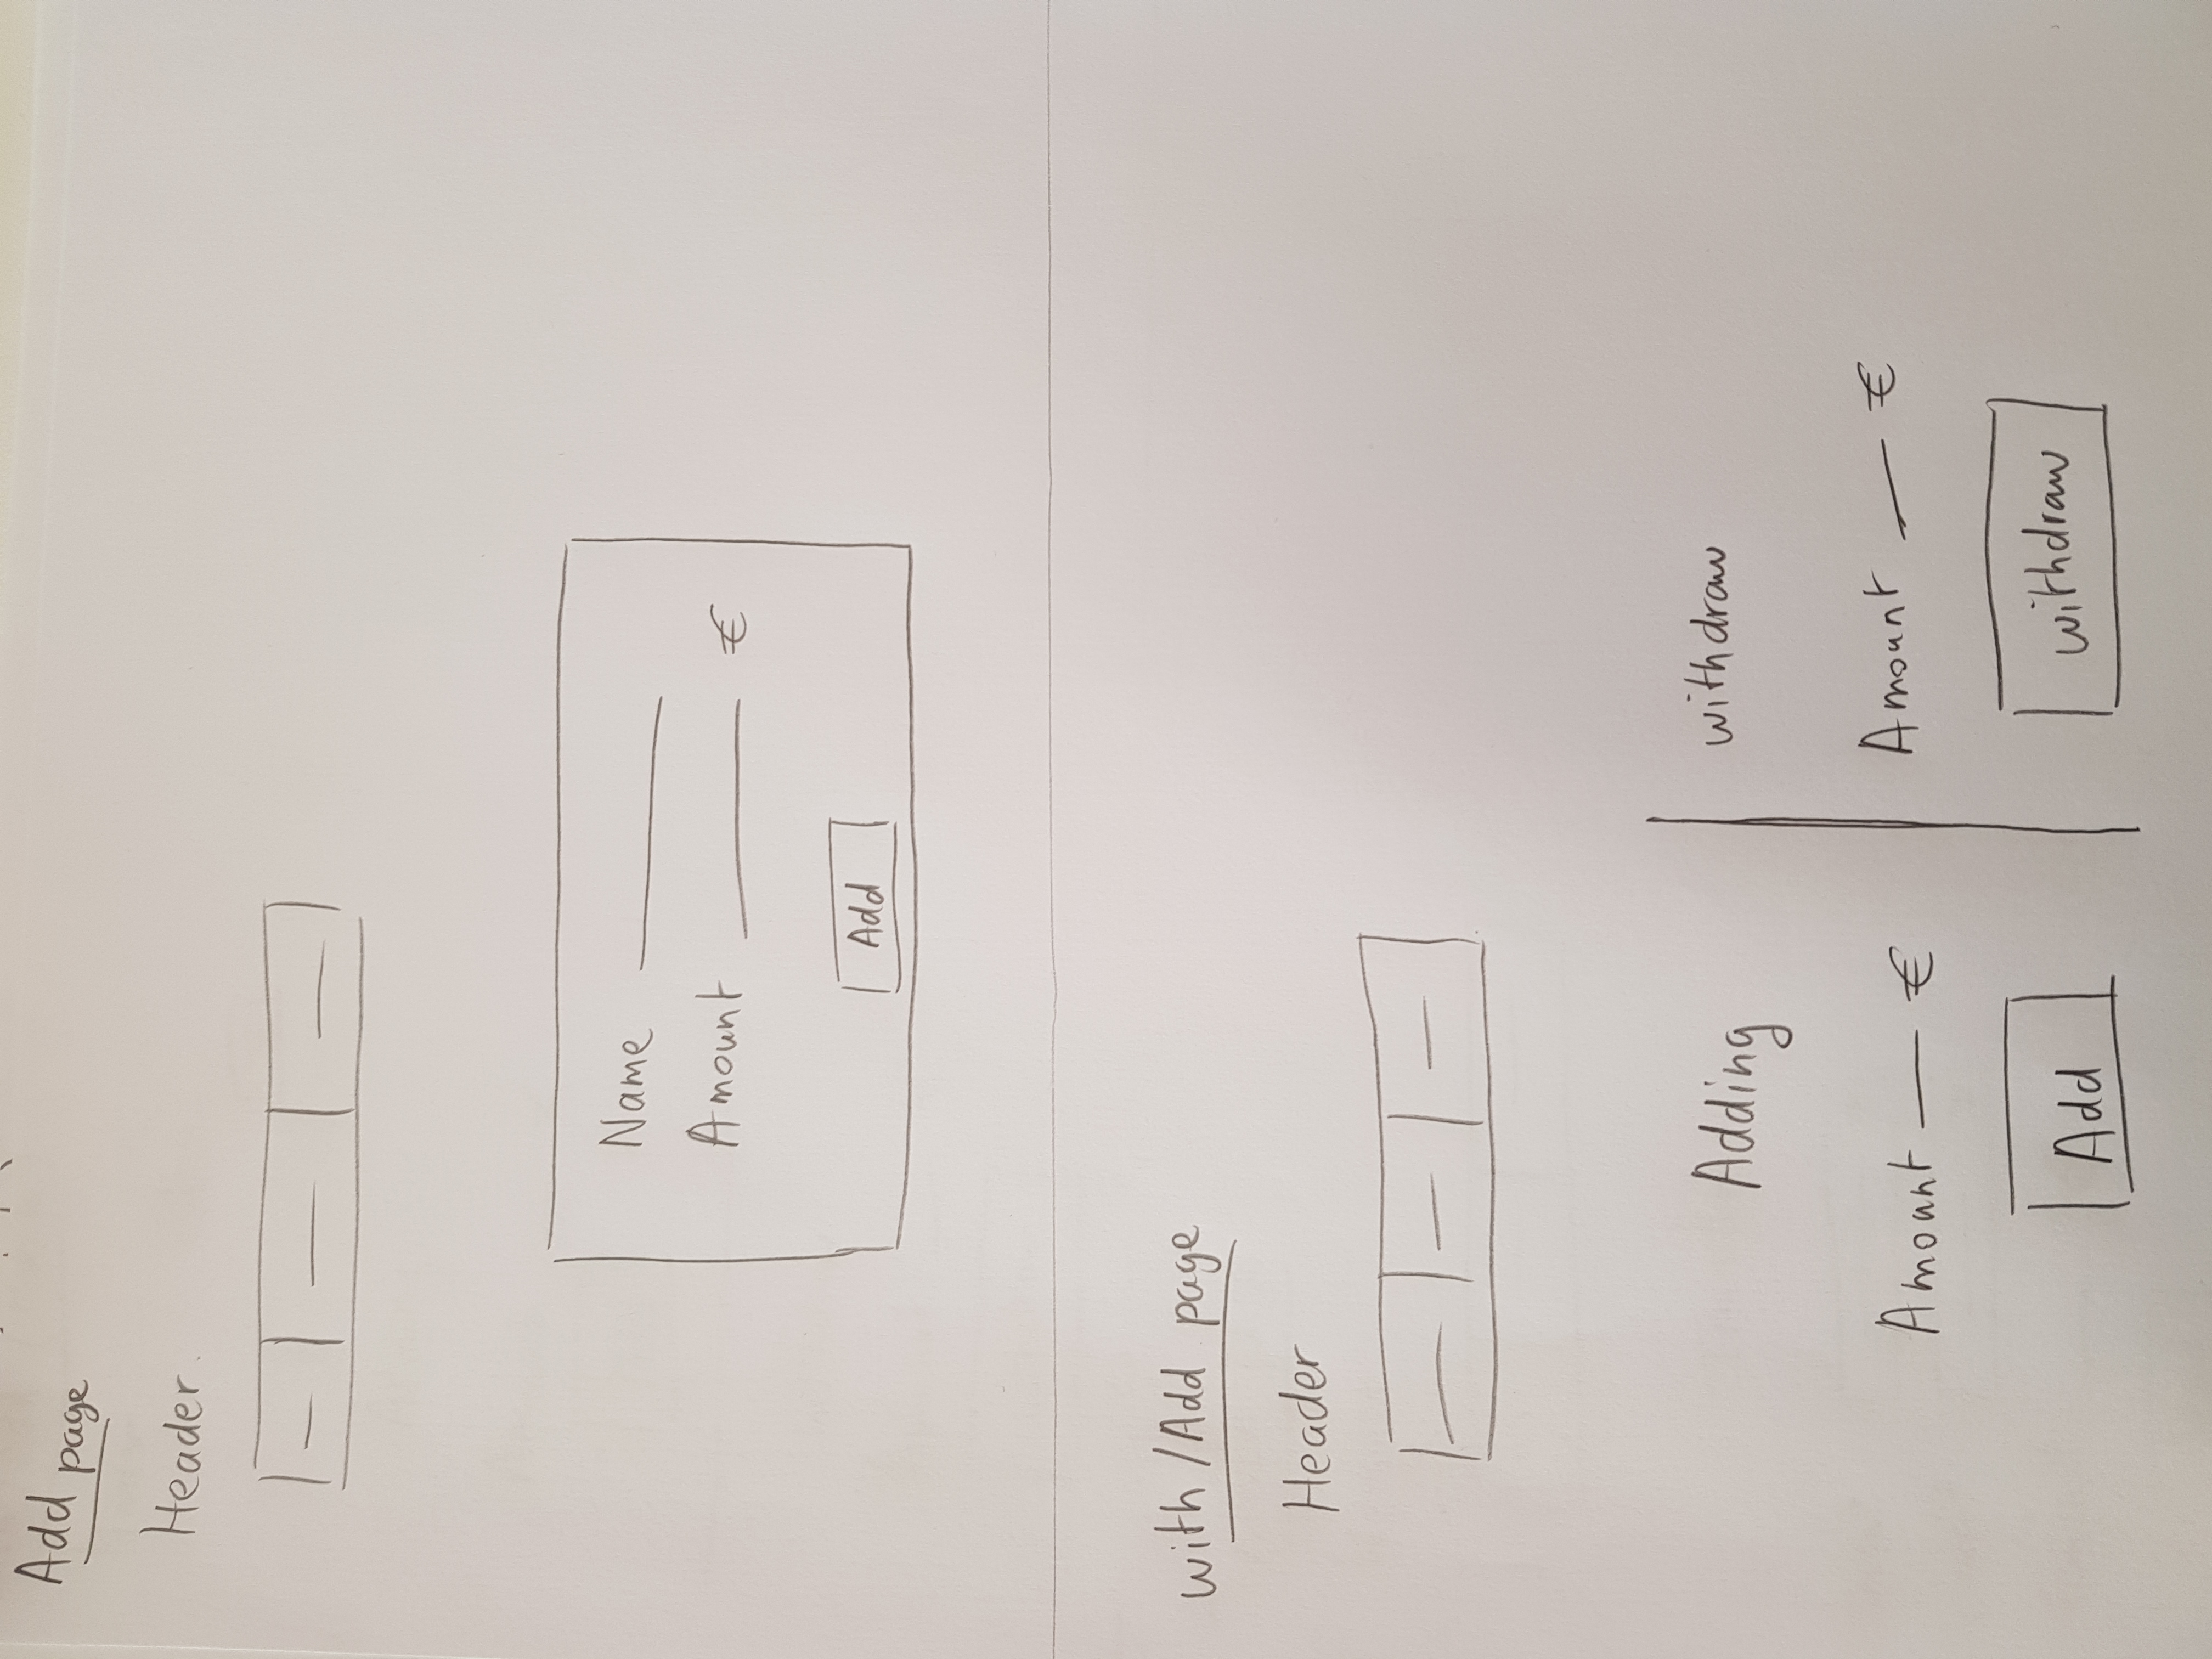 Add page
Header.
Name
Amount €
Add
with/Add page
Header
Adding
Amount €
Add
withdraw
Amount €
withdraw